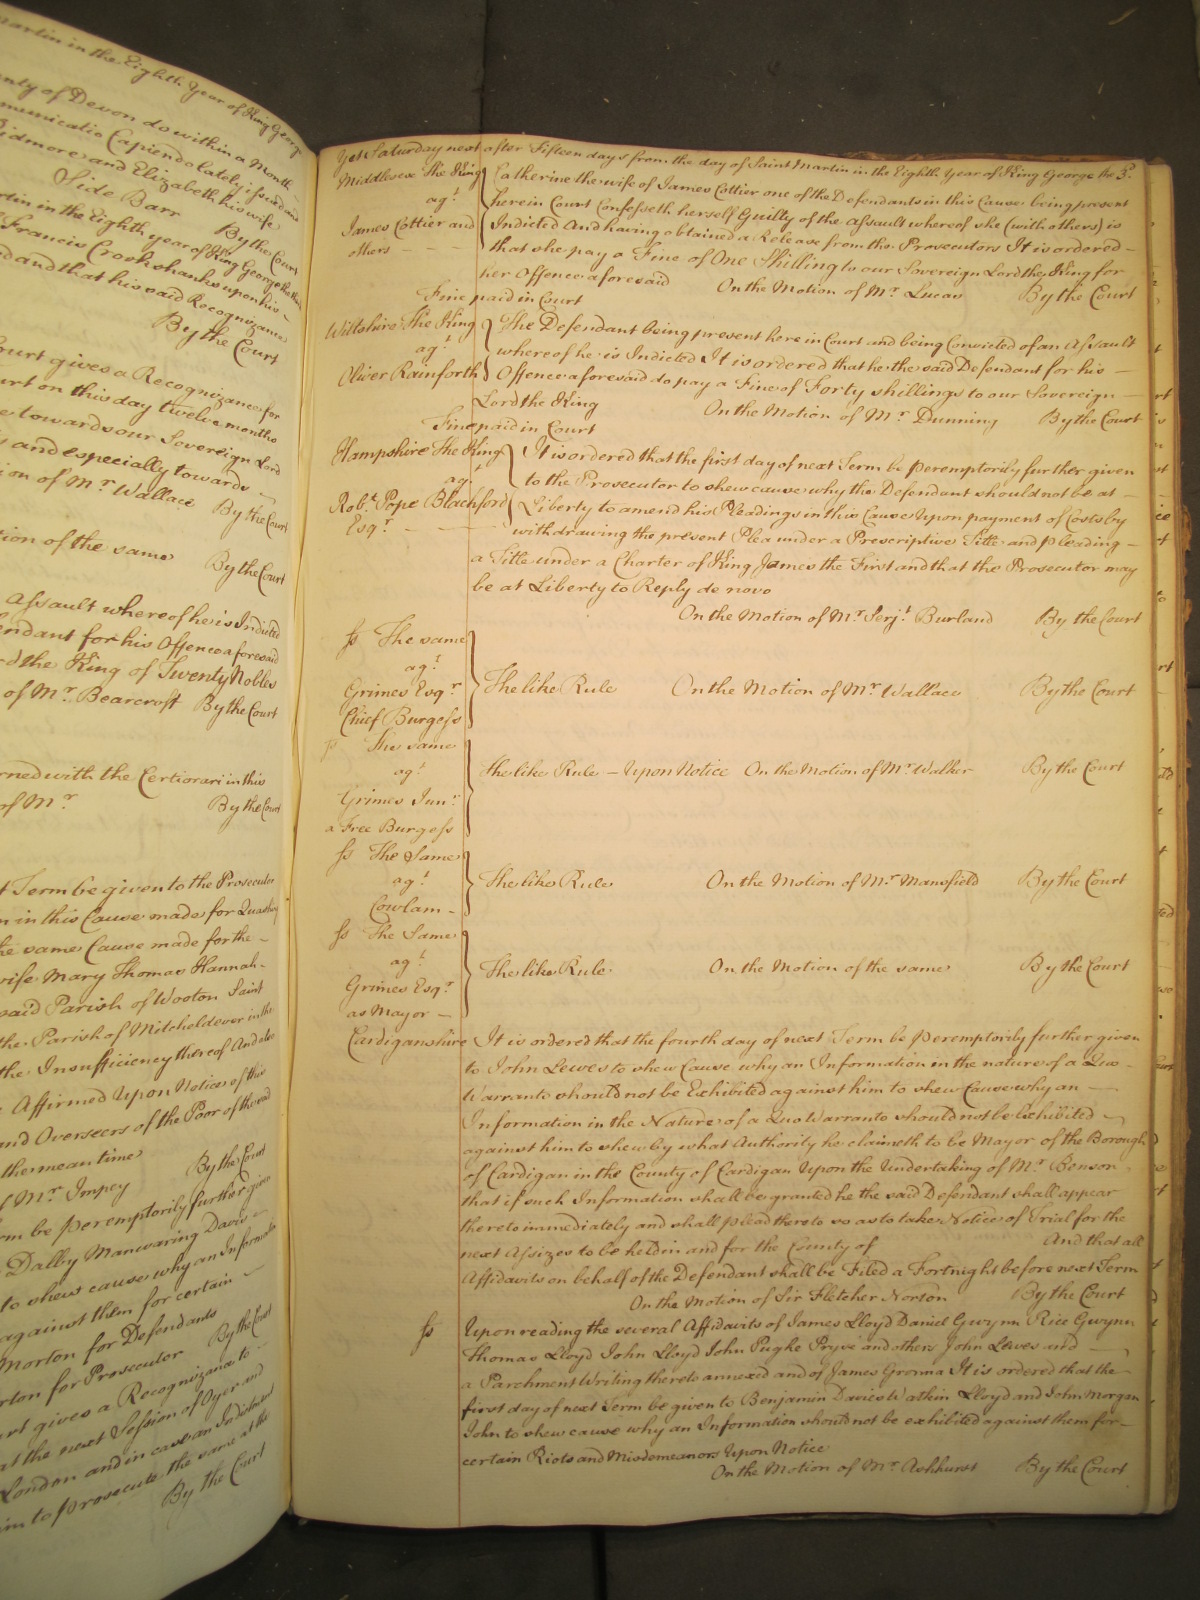 Martin in the Eighth Year of King George
nty of Devon do within a Month
mmunicatio Capiendo lately issued and
idmore and Elizabeth his wife
Side Barr By the Court
rtin in the Eighth year of King George the third
Francis Crookshanks upon his
nd and that his said Recognizance
By the Court
Court gives a Recognizance for
urt on this day twelve months
e towards our Sovereign Lord
s and especially towards
ion of Mr. Wallace By the Court
tion of the same By the Court
Assault whereof he is Indicted
endant for his Offence aforesaid
rd the King of Twenty Nobles
of Mr. Bearcroft By the Court
rned with the Certiorari in this
of Mr. By the Court
t Term be given to the Prosecutor
n in this Cause made for Quashing
the same Cause made for the
wife Mary Thomas Hannah
said Parish of Wooton Saint
the Parish of Mitcheldever in the
the Insufficiency thereof And also
Affirmed Upon Notice of this
and Overseers of the Poor of the said
the mean time By the Court
f Mr. Impey
rm be peremptorily further given
Dalby Manwaring Davis
to shew cause why an Information
against them for certain
Morton for Defendants
rton for Prosecutor By the Court
urt gives a Recognizance to
at the next Session of Oyer and
London and in case an Indictment
im to prosecute the same at the
By the Court
Yet Saturday next after Fifteen days from the day of Saint Martin in the Eighth Year of King George the 3d.
Middlesex The King agt. James Cottier and others
Catherine the wife of James Cottier one of the Defendants in this Cause being present
herein Court Confesseth herself Guilty of the Assault whereof she (with others) is
Indicted And having obtained a Release from the Prosecutors It is ordered
that she pay a Fine of One Shilling to our Sovereign Lord the King for
her Offence aforesaid On the Motion of Mr. Lucas By the Court
Fine paid in Court
Wiltshire The King agt. Oliver Rainforth
The Defendant being present here in Court and being Convicted of an Assault
whereof he is Indicted It is ordered that he the said Defendant for his
Offence aforesaid do pay a Fine of Forty shillings to our Sovereign
Lord the King On the Motion of Mr. Dunning By the Court
Fine paid in Court
Hampshire The King agt. Robt. Pope Blachford Esqr.
It is ordered that the first day of next Term be peremptorily further given
to the Prosecutor to shew cause why the Defendant should not be at
Liberty to amend his Pleadings in this Cause Upon payment of Costs by
withdrawing the present Plea under a Prescriptive Title and pleading
a Title under a Charter of King James the First and that the Prosecutor may
be at Liberty to Reply de novo
On the Motion of Mr. Serjt. Burland By the Court
ss The same
agt.
Grimes Esqr.
Chief Burgess
The like Rule On the Motion of Mr. Wallace By the Court
ss The same
agt.
Grimes Junr.
a Free Burgess
The like Rule – Upon Notice On the Motion of Mr. Walker By the Court
ss The Same
agt.
Cowlam
The like Rule On the Motion of Mr. Mansfield By the Court
ss The Same
agt.
Grimes Esqr.
as Mayor
The like Rule On the Motion of the same By the Court
Cardiganshire It is ordered that the fourth day of next Term be peremptorily further given
to John Lewes to shew Cause why an Information in the nature of a Quo
Warranto should not be Exhibited against him to shew Cause why an
Information in the Nature of a Quo Warranto should not be Exhibited
against him to shew by what Authority he claimeth to be Mayor of the Borough
of Cardigan in the County of Cardigan Upon the Undertaking of Mr. Benson
that if such Information shall be granted he the said Defendant shall appear
thereto immediately and shall plead thereto so as to take Notice of Trial for the
next Assizes to be held in and for the County of And that all
Affidavits on behalf of the Defendant shall be Filed a Fortnight before next Term
On the Motion of Sir Fletcher Norton By the Court
ss Upon reading the several Affidavits of James Lloyd Daniel Gwynn Rice Gwynn
Thomas Lloyd John Lloyd John Pughe Pryse and others John Lewes and
a Parchment Writing thereto annexed and of James Gronna It is ordered that the
first day of next Term be given to Benjamin Davies Watkin Lloyd and John Morgan
John to shew cause why an Information should not be exhibited against them for
certain Riots and Misdemeanors Upon Notice
On the Motion of Mr. Ashhurst By the Court